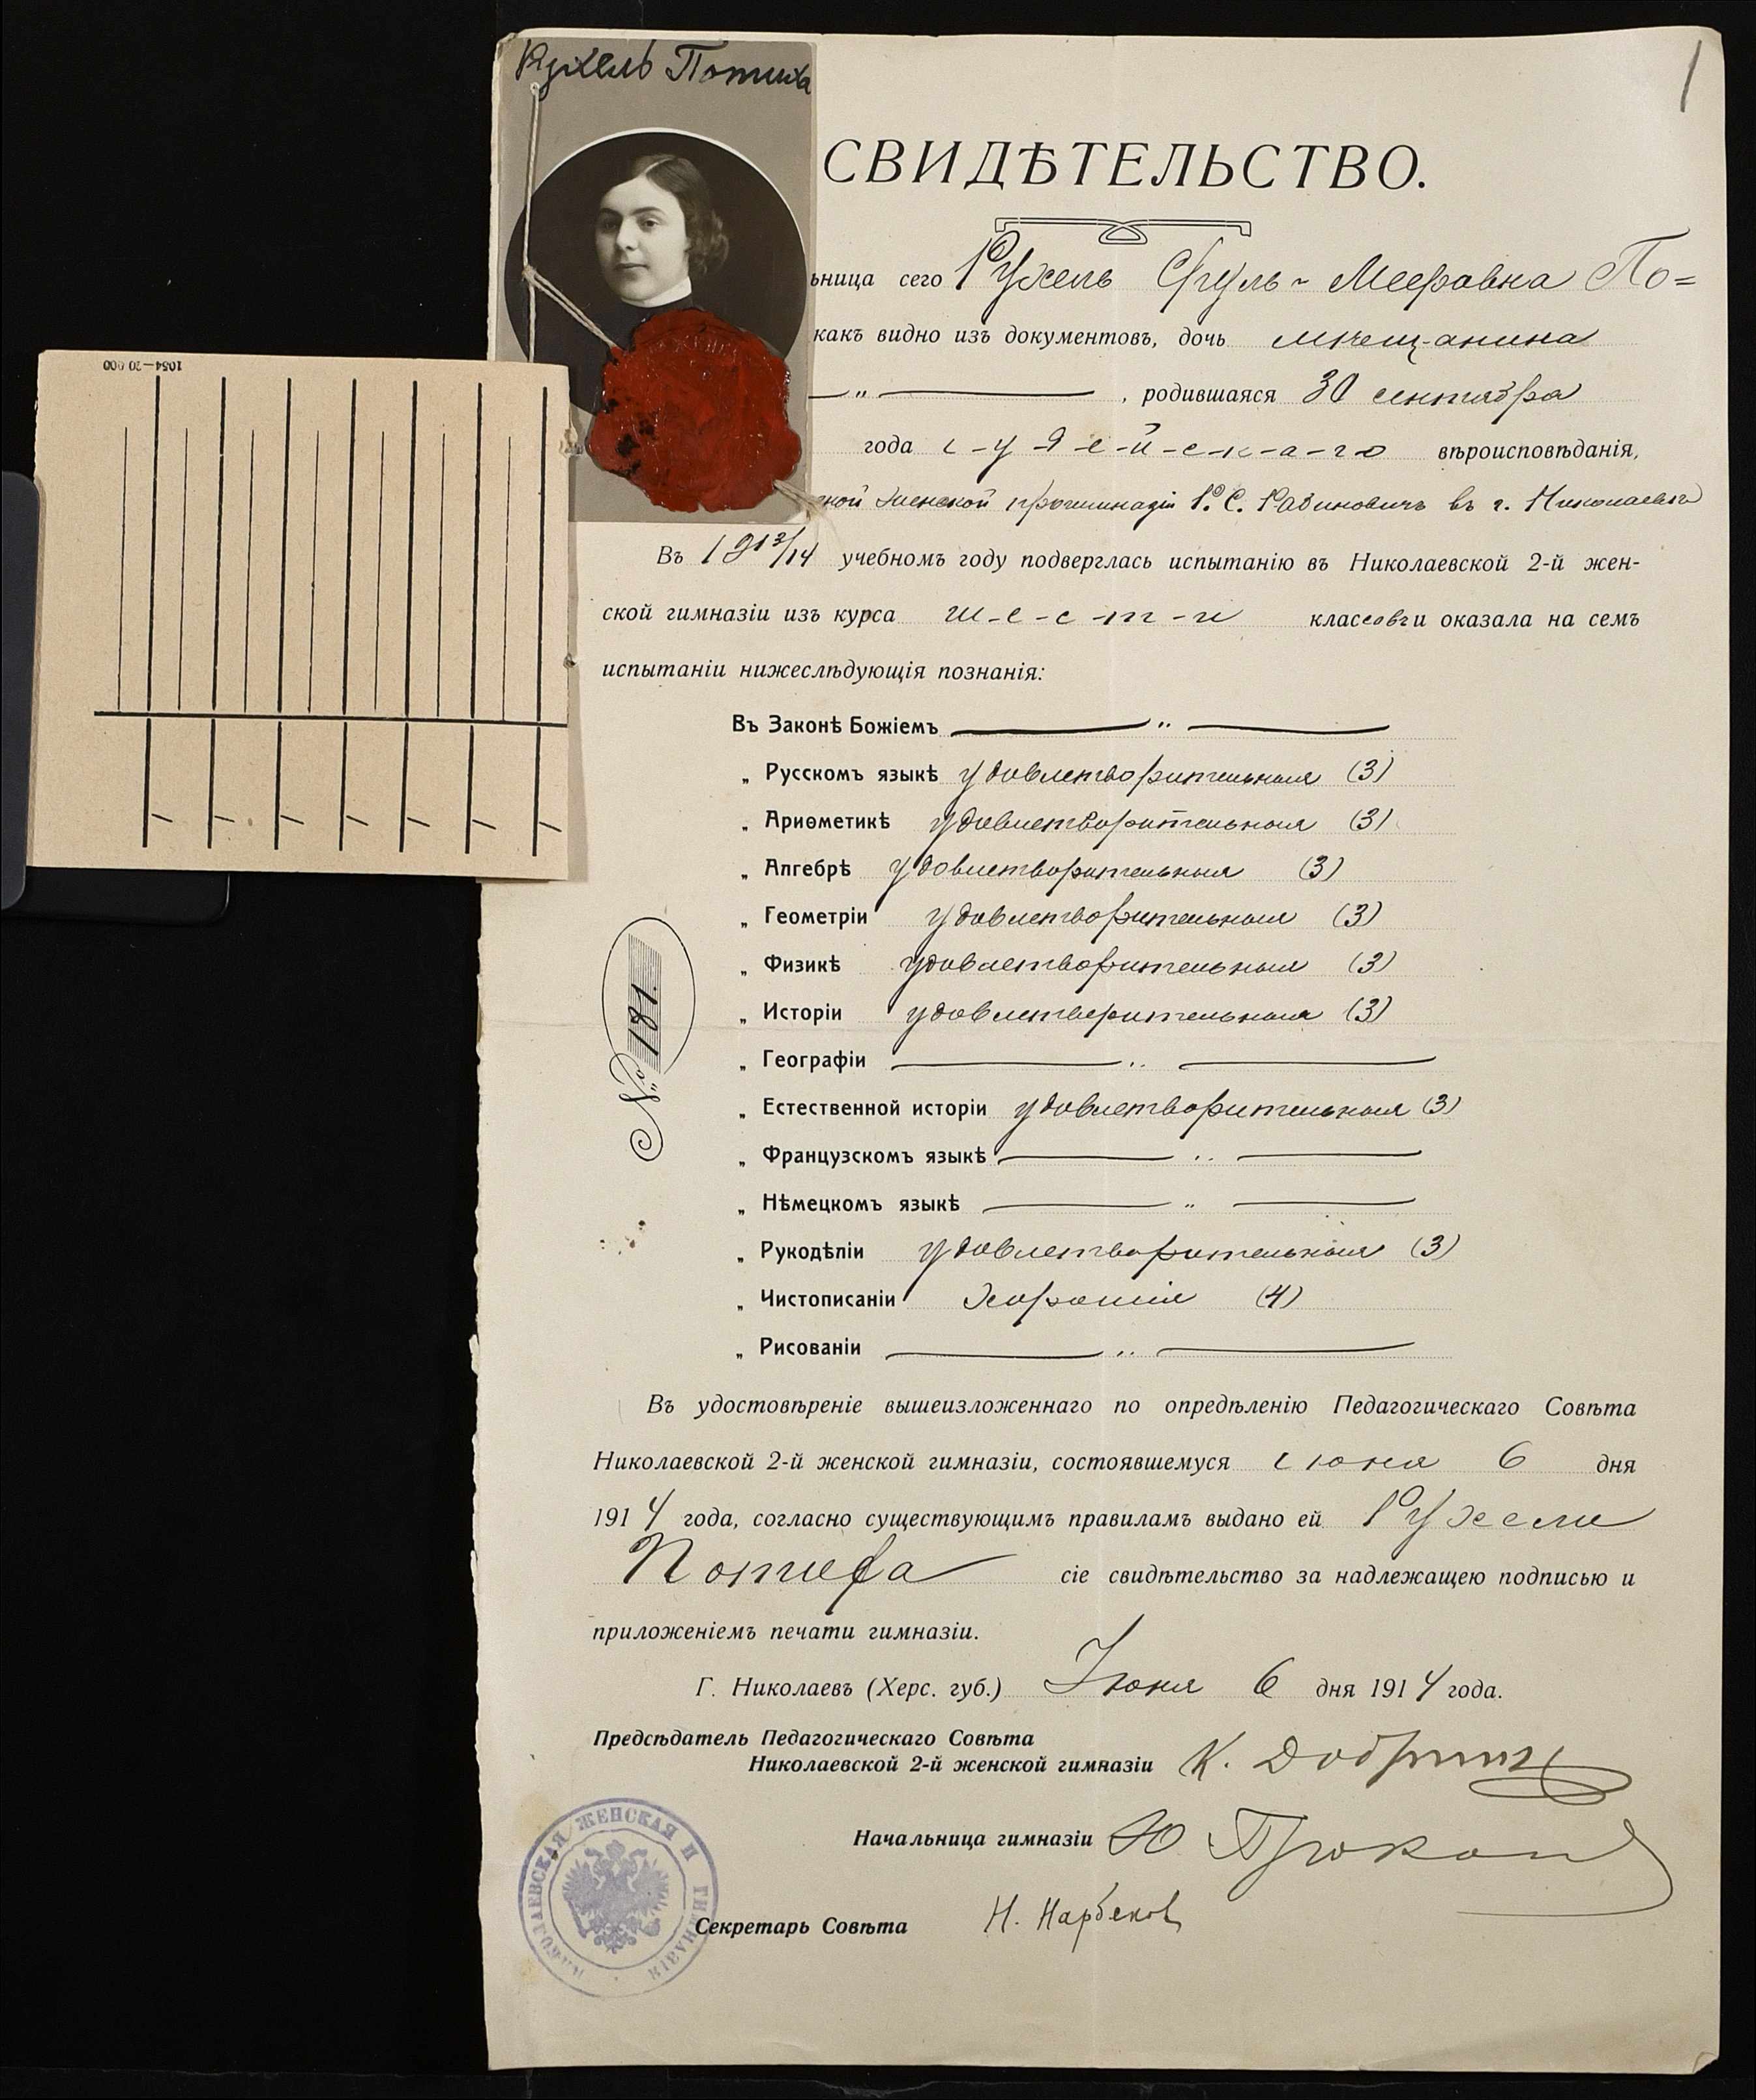 Рухель Потиха
1
СВИДѢТЕЛЬСТВО.
ьница сего Рухель Сруль-Мееровна По=
какъ видно изъ документовъ, дочь мѣщанина
— „ — , родившаяся 30 сентября
года і-у-д-е-й-с-к-а-г-о вѣроисповѣданія,
ской женской прогимназіи Р. С. Рабиновичъ въ г. Николаевѣ
Въ 1913/14 учебномъ году подверглась испытанію въ Николаевской 2-й жен-
ской гимназіи изъ курса ш-е-с-т-и классовъ и оказала на семъ
испытаніи нижеслѣдующія познанія:
Въ Законѣ Божіемъ — „ —
„ Русскомъ языкѣ удовлетворительныя (3)
„ Ариѳметикѣ удовлетворительныя (3)
„ Алгебрѣ удовлетворительныя (3)
„ Геометріи удовлетворительныя (3)
„ Физикѣ удовлетворительныя (3)
„ Исторіи удовлетворительныя (3)
„ Географіи — „ —
„ Естественной исторіи удовлетворительныя (3)
„ Французскомъ языкѣ — „ —
„ Нѣмецкомъ языкѣ — „ —
„ Рукодѣліи удовлетворительныя (3)
„ Чистописаніи хорошія (4)
„ Рисованіи — „ —
№ 181.
Въ удостовѣреніе вышеизложеннаго по опредѣленію Педагогическаго Совѣта
Николаевской 2-й женской гимназіи, состоявшемуся іюня 6 дня
1914 года, согласно существующимъ правиламъ выдано ей Рухели
сіе свидѣтельство за надлежащею подписью и
приложеніемъ печати гимназіи.
Г. Николаевъ (Херс. губ.) Іюня 6 дня 1914 года.
Предсѣдатель Педагогическаго Совѣта
Николаевской 2-й женской гимназіи К.
Начальница гимназіи Ю.
Секретарь Совѣта Н. Нарбеков
НИКОЛАЕВСКАЯ ЖЕНСКАЯ II ГИМНАЗІЯ
1054—20 000